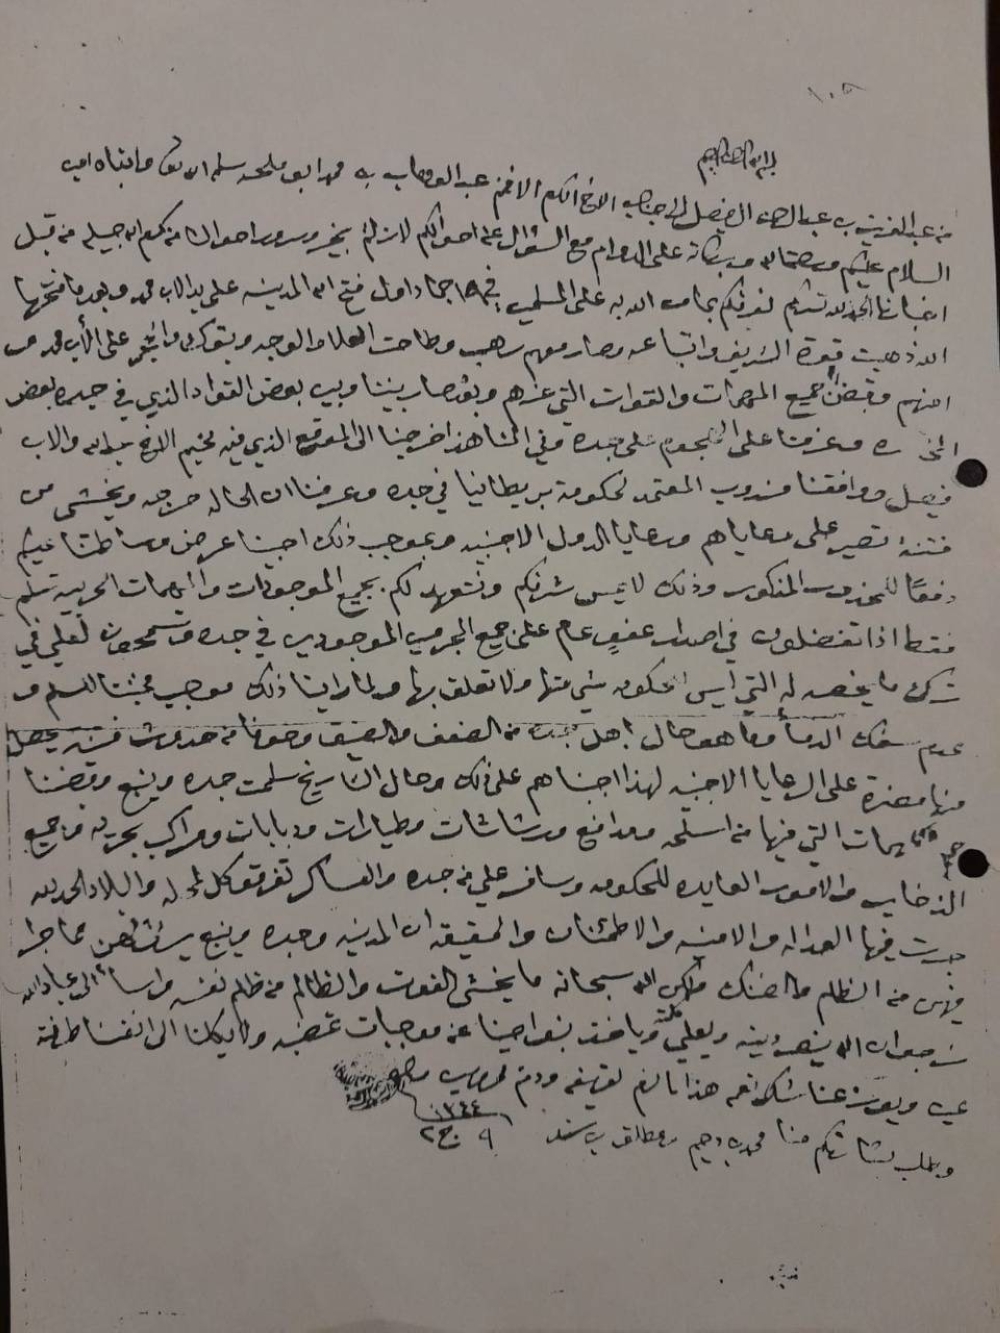 ١٠٥
بسم الله الرحمن الرحيم
من عبد العزيز بن عبد الرحمن الفيصل الى جناب الاخ المكرم الافخم عبد الوهاب بن محمد ابو ملحه سلمه الله تعالى وابقاه امين
السلام عليكم ورحمة الله وبركاته على الدوام مع السؤال عن احوالكم لازلتم بخير وسرور احوالنا من كرم الله جميله من قبل
اخبارنا الحمد لله نعرفكم بما من الله به على المسلمين في ١٩ جماد اول فتح الله المدينه على يد الابن محمد وبعد ما فتحها
الله ذهبت قوة الشريف واتباعه وصار معهم رهب وطاحت العلا والوجه وتبوك على الابن محمد
امنهم وقبضنا جميع المهمات والقوات التي عندهم وبعد صار بيننا وبين بعض القواد الذي في جده بعض
المخابره وعزمنا على الهجوم على جده وفي اثنا هذا خرجنا الى الموقع الذي فيه مخيم الاخ عبد الله والابن
فيصل ووافقنا مندوب المعتمد لحكومة بريطانيا في جده وعرفنا ان الحاله حرجه ويخشى من
فتنة تصير على رعاياهم ورعايا الدول الاجنبيه وبموجب ذلك اجبنا عرض وساطتنا عليكم
دفعًا للمحذور المذكور وذلك لا يمس شرفكم ونتعهد لكم بجميع الموجودات والمهمات الحربيه تسلم
فقط اذا تفضلون في اصدار عفوٍ عام على جميع المجرمين الموجودين في جده وتسمحون لعلي في
ترك ما يخصه له التي ليس لحكومه شي منها ولا تعلق بها ولما راينا ذلك موجب محبتنا للسلم و
عدم سفك الدما وما هو حال اهل جده من الضعف والضيق وخوفا من حدوث فتنه يحصل
منها مضرة على الرعايا الاجنبيه لهذا اجبناهم على ذلك وحال التاريخ سلمت جده وينبع وقبضنا
جميع المهمات التي فيها من اسلحه ومدافع ورشاشات وطيارات ودبابات ومراكب بحريه وجميع
الذخاير والامور العايده للحكومه وسافر علي من جده والعساكر تفرقو كل لمحله والبلاد الحمد لله
جرت فيها العداله والامنيه والاطمئنان والحقيقه ان المدينه وجده وينبع مما جرا
فيهن من الظلم والضنك ولكن الله سبحانه ما يخشى الفوت والظالم من ظلم نفسه واسأ الى عباد الله
نرجو الله ان ينصر دينه ويعلي كلمته وياخذ بنواصينا عن موجبات غضبه ولا يكلنا الى انفسنا طرفة
عين ويوزعنا شكر نعمه هذا ما لزم تعريفه ودمتم محروسين والسلام
١٣٤٤
٩ ج٢
وطلب بشارتكم منا محمد بن دحيم ومطلق بن سند